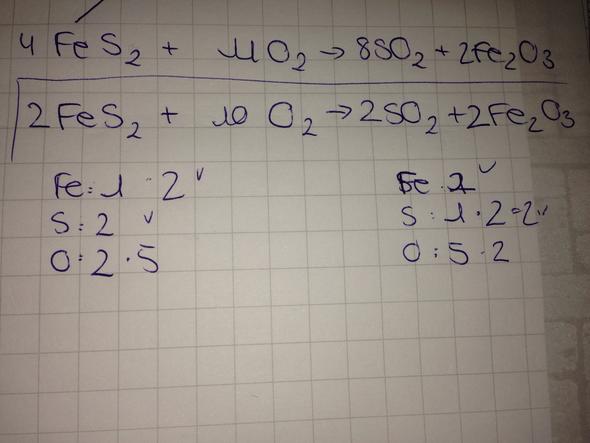 4 FeS₂ + 11O₂ → 8SO₂ + 2Fe₂O₃
2FeS₂ + 10 O₂ → 2SO₂ + 2Fe₂O₃
Fe: 1 · 2 ✓ Fe 2 ✓
S: 2 ✓ S: 1 · 2 = 2 ✓
O: 2 · 5 O: 5 · 2